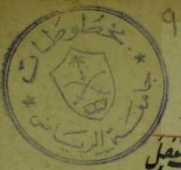 ٩
مخطوطات
جامعة الرياض